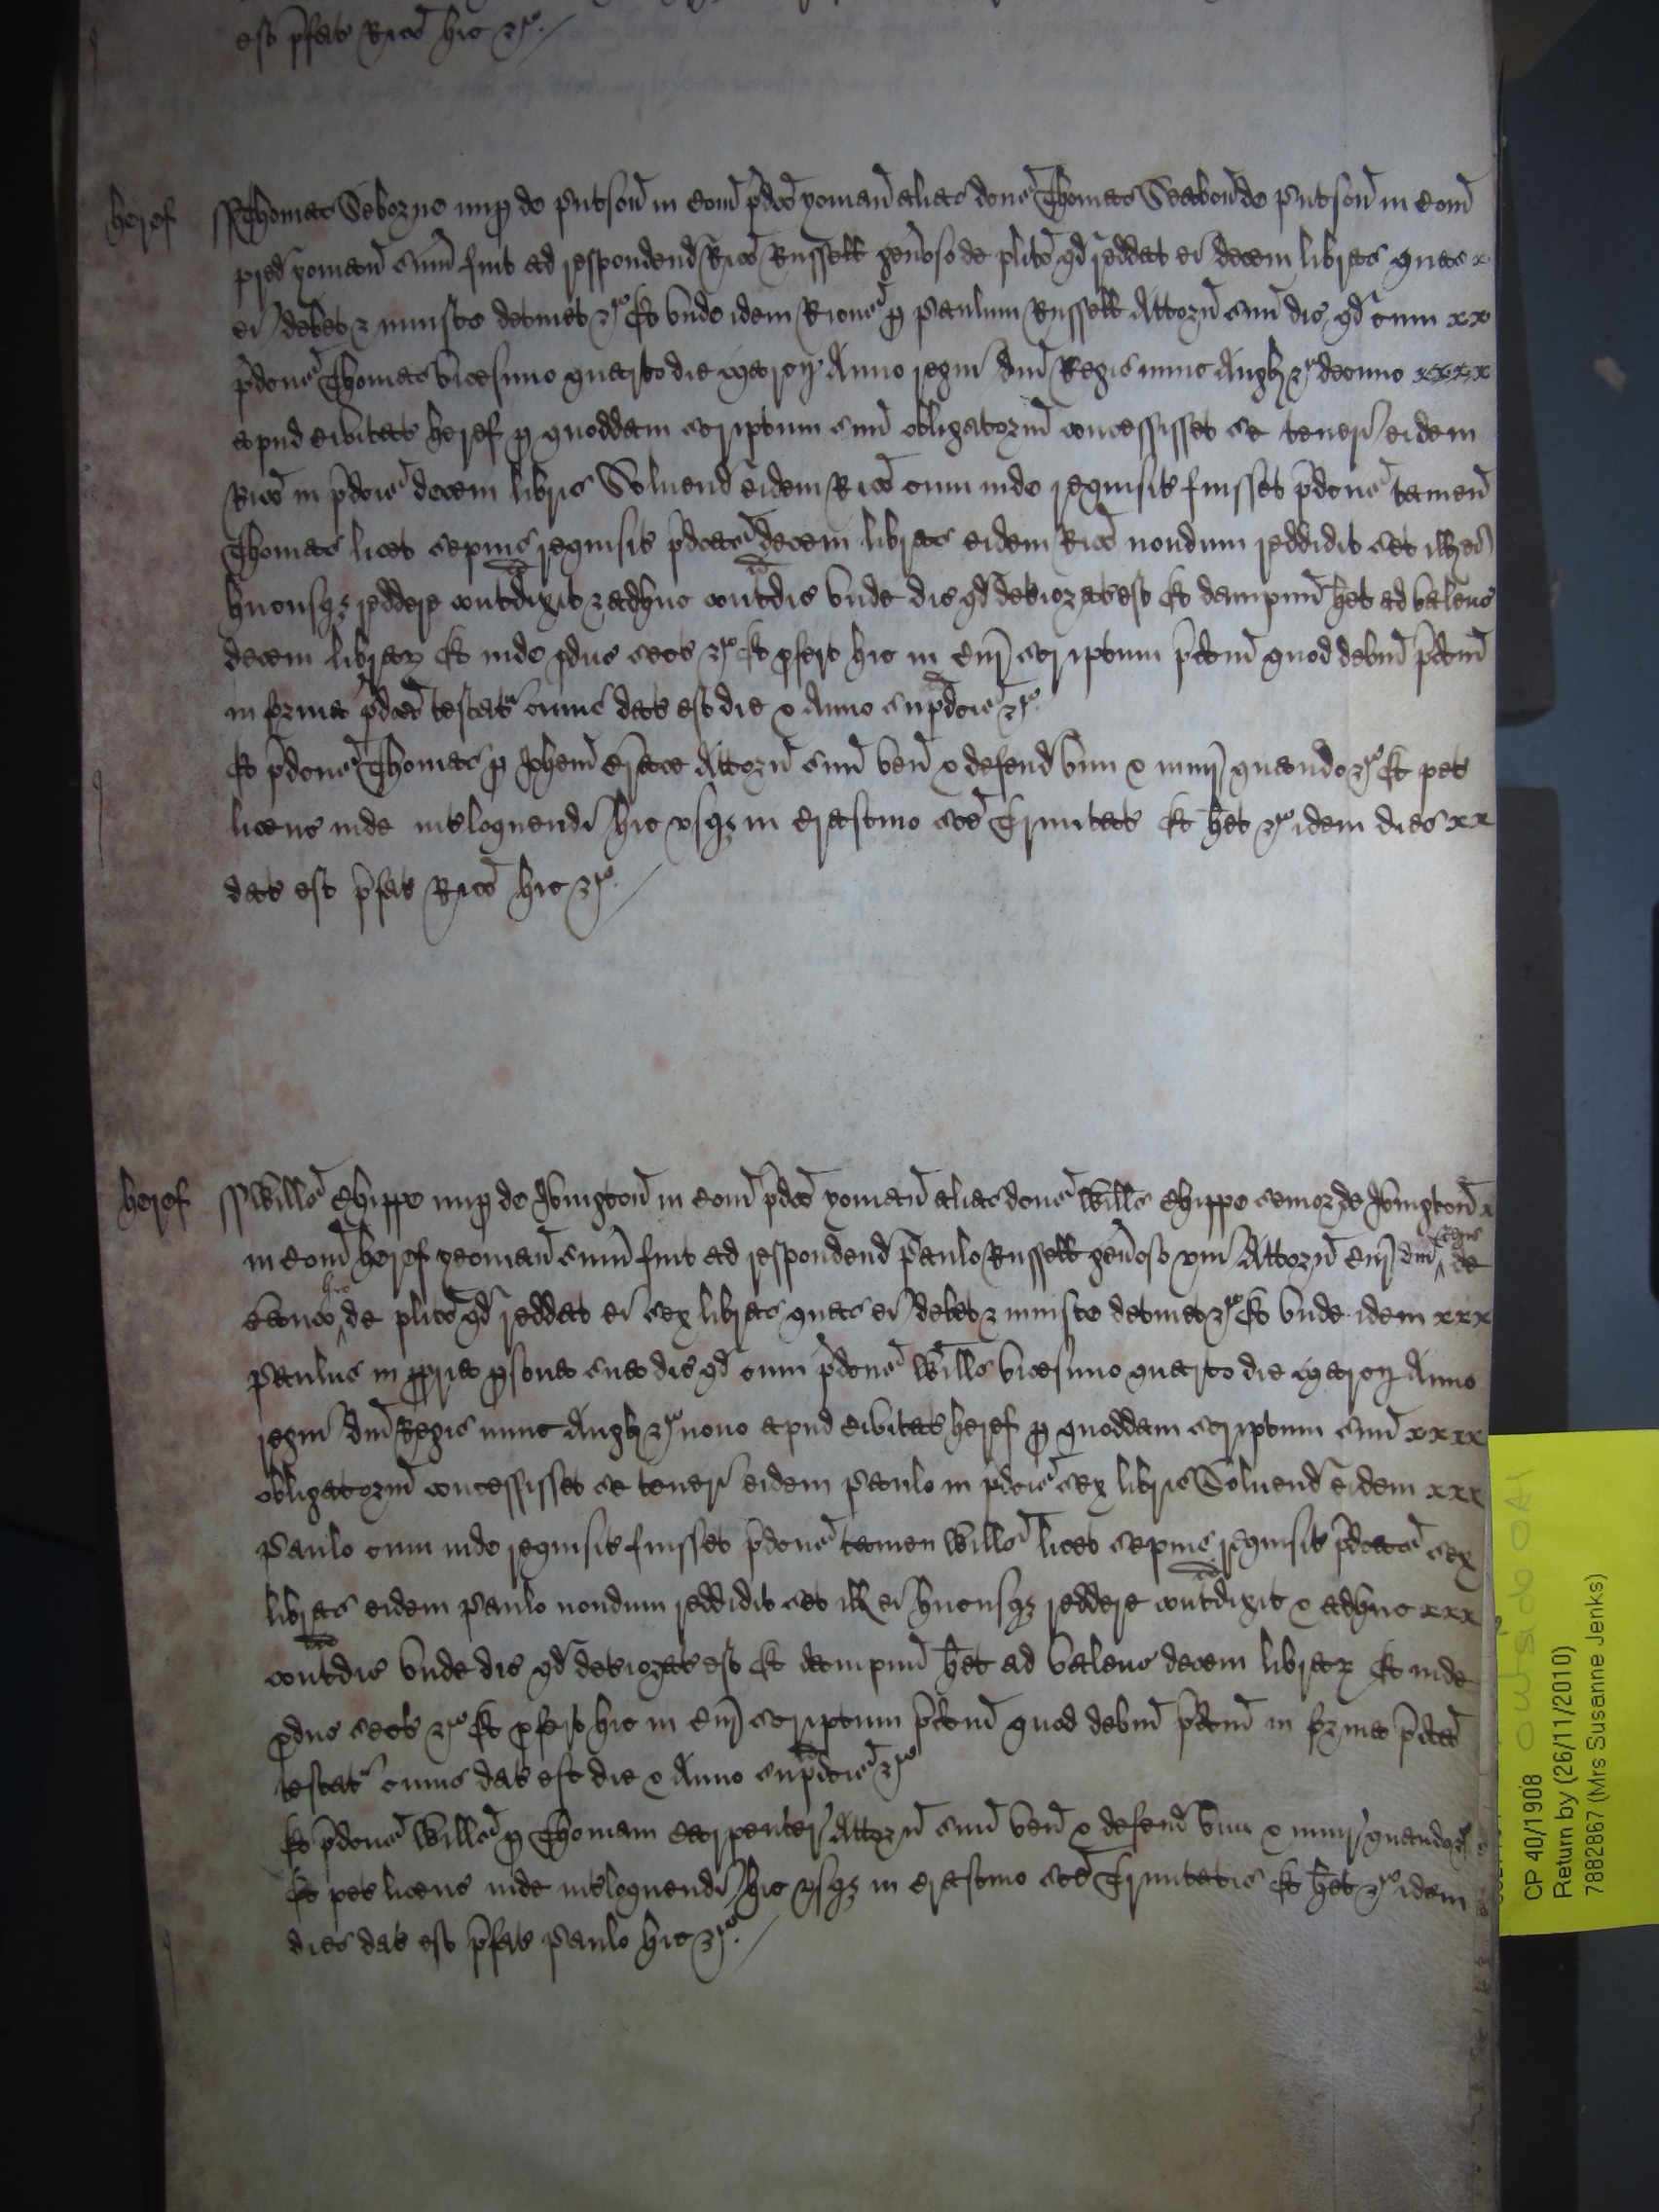 est p̄fat Ricō hic ⁊c̄
heref
ss Thomas Seborne nup de Putson̄ in Com̄ p̄dcō yoman̄ alias dcūs Thomas Seabon̄ de Putson̄ in Com̄
pred yoman̄ sum̄ fuit ad respondend Ricō Russell gen̄oso de plitō qd reddat ei decem libras quas x
ei debet ⁊ iniuste detinet ⁊c̄ Et unde idem Ricūs p Paulum Russell Attorn̄ suū dic qd cum xx
p̄dcūs Thomas vicesimo quarto die marcij Anno regni dn̄i Regis nunc Angl ⁊c̄ decimo xxxx
apud Civitat heref p quoddam scriptum suū obligatoriū concessisset se teneri eidem
Ricō in p̄dcīs decem libris Solvend eidem Ricō cum inde requisit fuisset p̄dcūs tamen̄
Thomas licet sepius requisit p̄dcās decem libras eidem Ricō nondum reddidit set ill ei
hucusqꝫ reddere contᵃdixit ⁊ adhuc contᵃdic unde dic qd deteriorat est Et dampnū het ad valenc
decem librar Et inde pduc sect ⁊c̄ Et pfert hic in Cur̄ scriptum p̄dcm̄ quod debm̄ p̄dcm̄
in forma p̄dcā testatʳ cuius dat est die & Anno sup̄dcīs ⁊c̄
Et p̄dcūs Thomas p Johem̄ Attorn̄ suū ven̄ & defend vim & iniur̄ quando ⁊c̄ Et pet
licenc inde int̄loquendi hic usqꝫ in Crastino scē Trinitat Et het ⁊c̄ idem dies xx
dat est p̄fat Ricō hic ⁊c̄
heref
ss Willūs Chippe nup de Ivington̄ in Com̄ p̄dcō yoman̄ alias dcūs Willūs Chippe senior de Ivington̄ x
in Com̄ heref yeoman̄ sum̄ fuit ad respondend Paulo Russell gen̄oso uni Attorn̄ Cur̄ dn̄i Regis de
Banco hic de plitō qd reddat ei sex libras quas ei debet ⁊ iniuste detinet ⁊c̄ Et unde idem xxx
Paulus in ppria psona sua dic qd cum p̄dcūs Willūs vicesimo quarto die marcij Anno
regni dn̄i Regis nunc Angl ⁊c̄ nono apud Civitat heref p quoddam scriptum suū xxxx
obligatoriū concessisset se teneri eidem Paulo in p̄dcīs sex libris Solvend eidem xxx
Paulo cum inde requisit fuisset p̄dcūs tamen Willūs licet sepius requisit p̄dcās sex
libras eidem Paulo nondum reddidit set ill ei hucusqꝫ reddere contᵃdixit & adhuc xxx
contᵃdic unde dic qd deteriorat est Et dampnū het ad valenc decem librar Et inde
pduc sect ⁊c̄ Et pfert hic in Cur̄ scriptum p̄dcm̄ quod debm̄ p̄dcm̄ in forma p̄dcā
testatʳ cuius dat est die & Anno sup̄dcīs ⁊c̄
Et p̄dcūs Willūs p Thomam Carpenter Attorn̄ suū ven̄ & defend vim & iniur̄ quando ⁊c̄
Et pet licenc inde int̄loquendi hic usqꝫ in Crastino scē Trinitatis Et het ⁊c̄ idem
dies dat est p̄fat Paulo hic ⁊c̄
outside OA1
CP 40/1908
Return by (26/11/2010)
7882867 (Mrs Susanne Jenks)